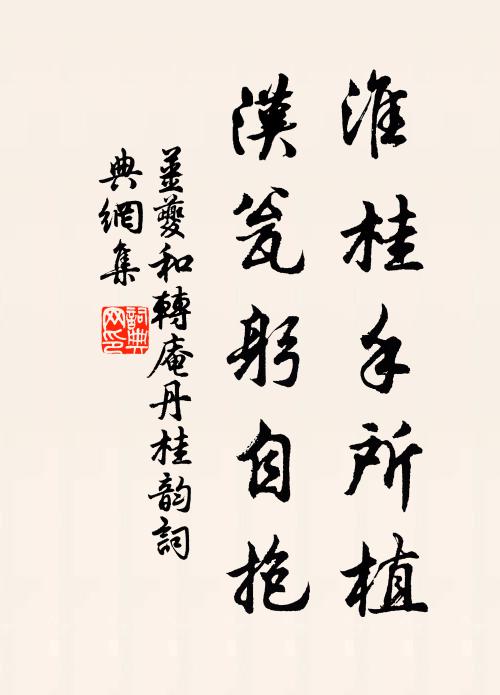 淮桂手所植
漢瓮躬自抱
薑夔和轉庵丹桂韵詞
典網集
詞典
网印